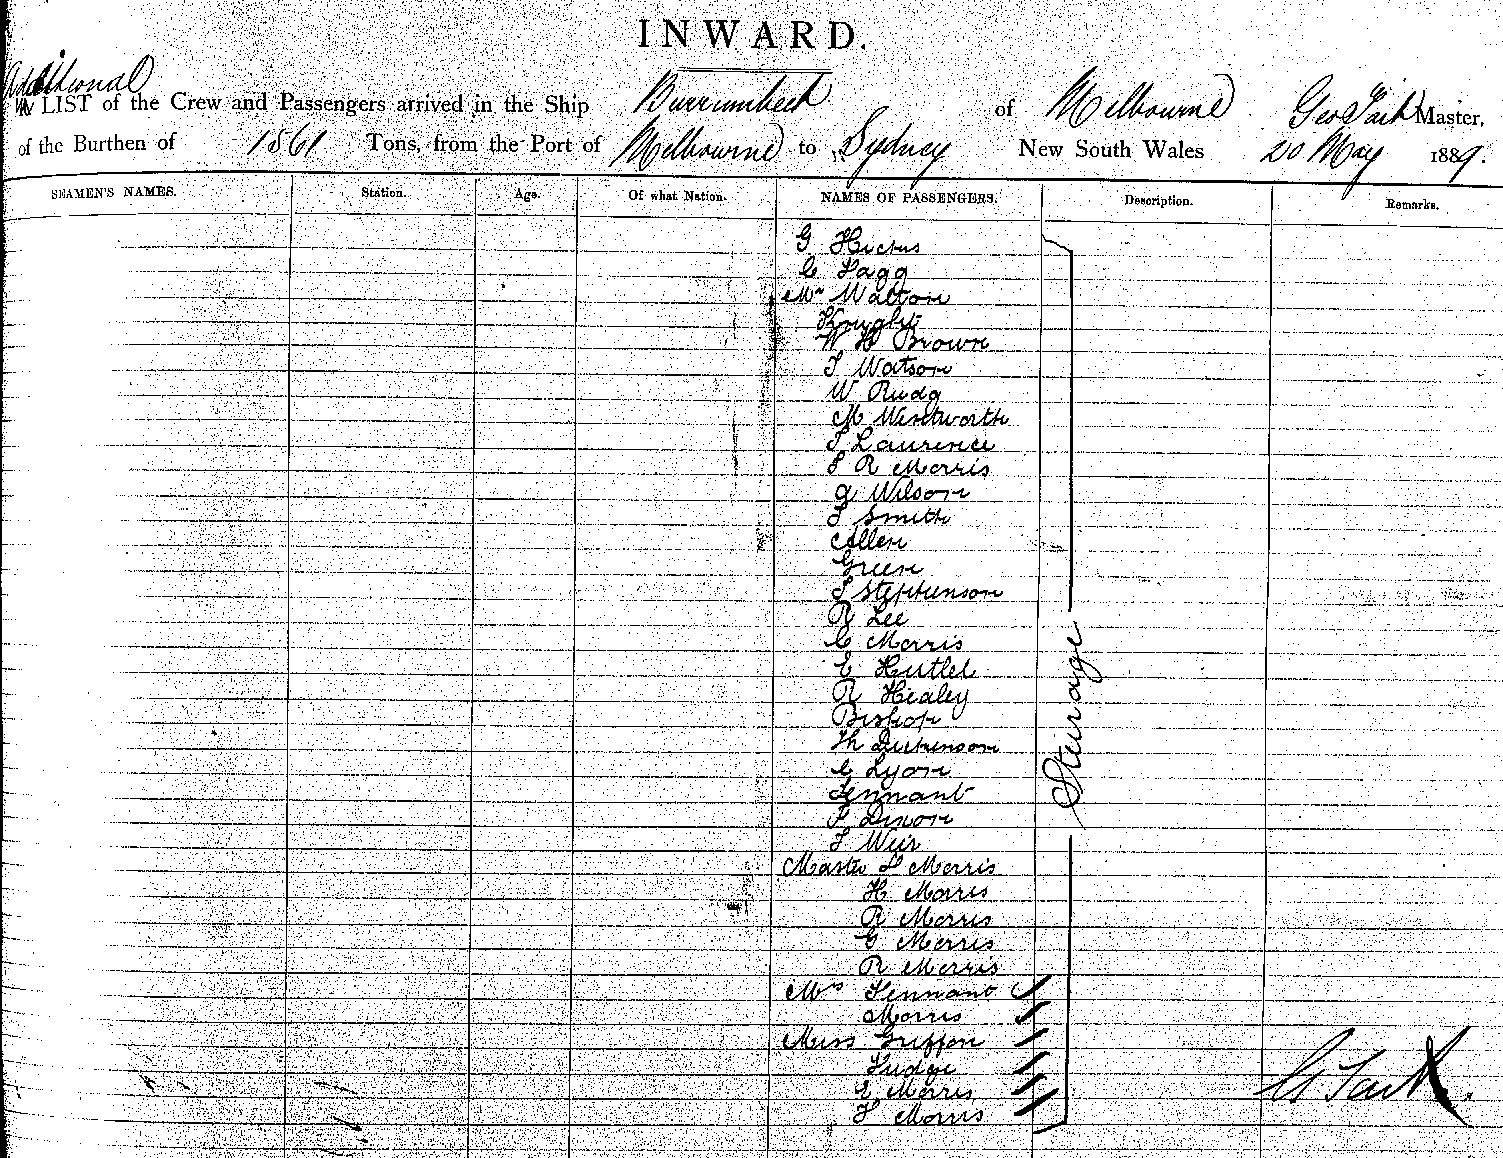 INWARD.
Additional
LIST of the Crew and Passengers arrived in the Ship Burrumbeet of Melbourne Geo Tait Master,
of the Burthen of 1861 Tons, from the Port of Melbourne to Sydney New South Wales 20 May 1889.
SEAMEN'S NAMES. Station. Age. Of what Nation. NAMES OF PASSENGERS. Description. Remarks.
G
C Fagg
Mr Walton
Knight
W H Brown
T Watson
W
M Wentworth
T Laurence
S R Morris
G Wilson
T Smith
Allen
Green
T Stephenson
R Lee
C Morris
E
R Healey
Bishop
Th Dickenson
C Lyon
Tennant
F Dixon
T Weir
Steerage
Master S Morris
H Morris
R Morris
G Morris
R Morris
Mrs Tennant
Morris
Miss Griffon
Fudge
E Morris
F Morris
G Tait.